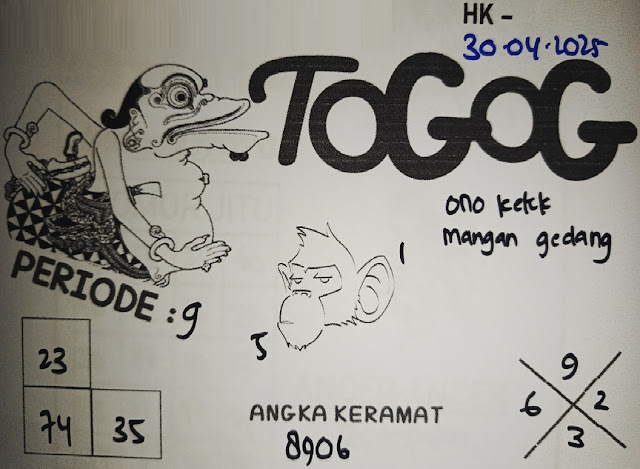 HK -
30-04-2025
TOGOG
ono ketek
mangan gedang
PERIODE : 9
1
5
23
74 35
ANGKA KERAMAT
8906
9
6 2
3